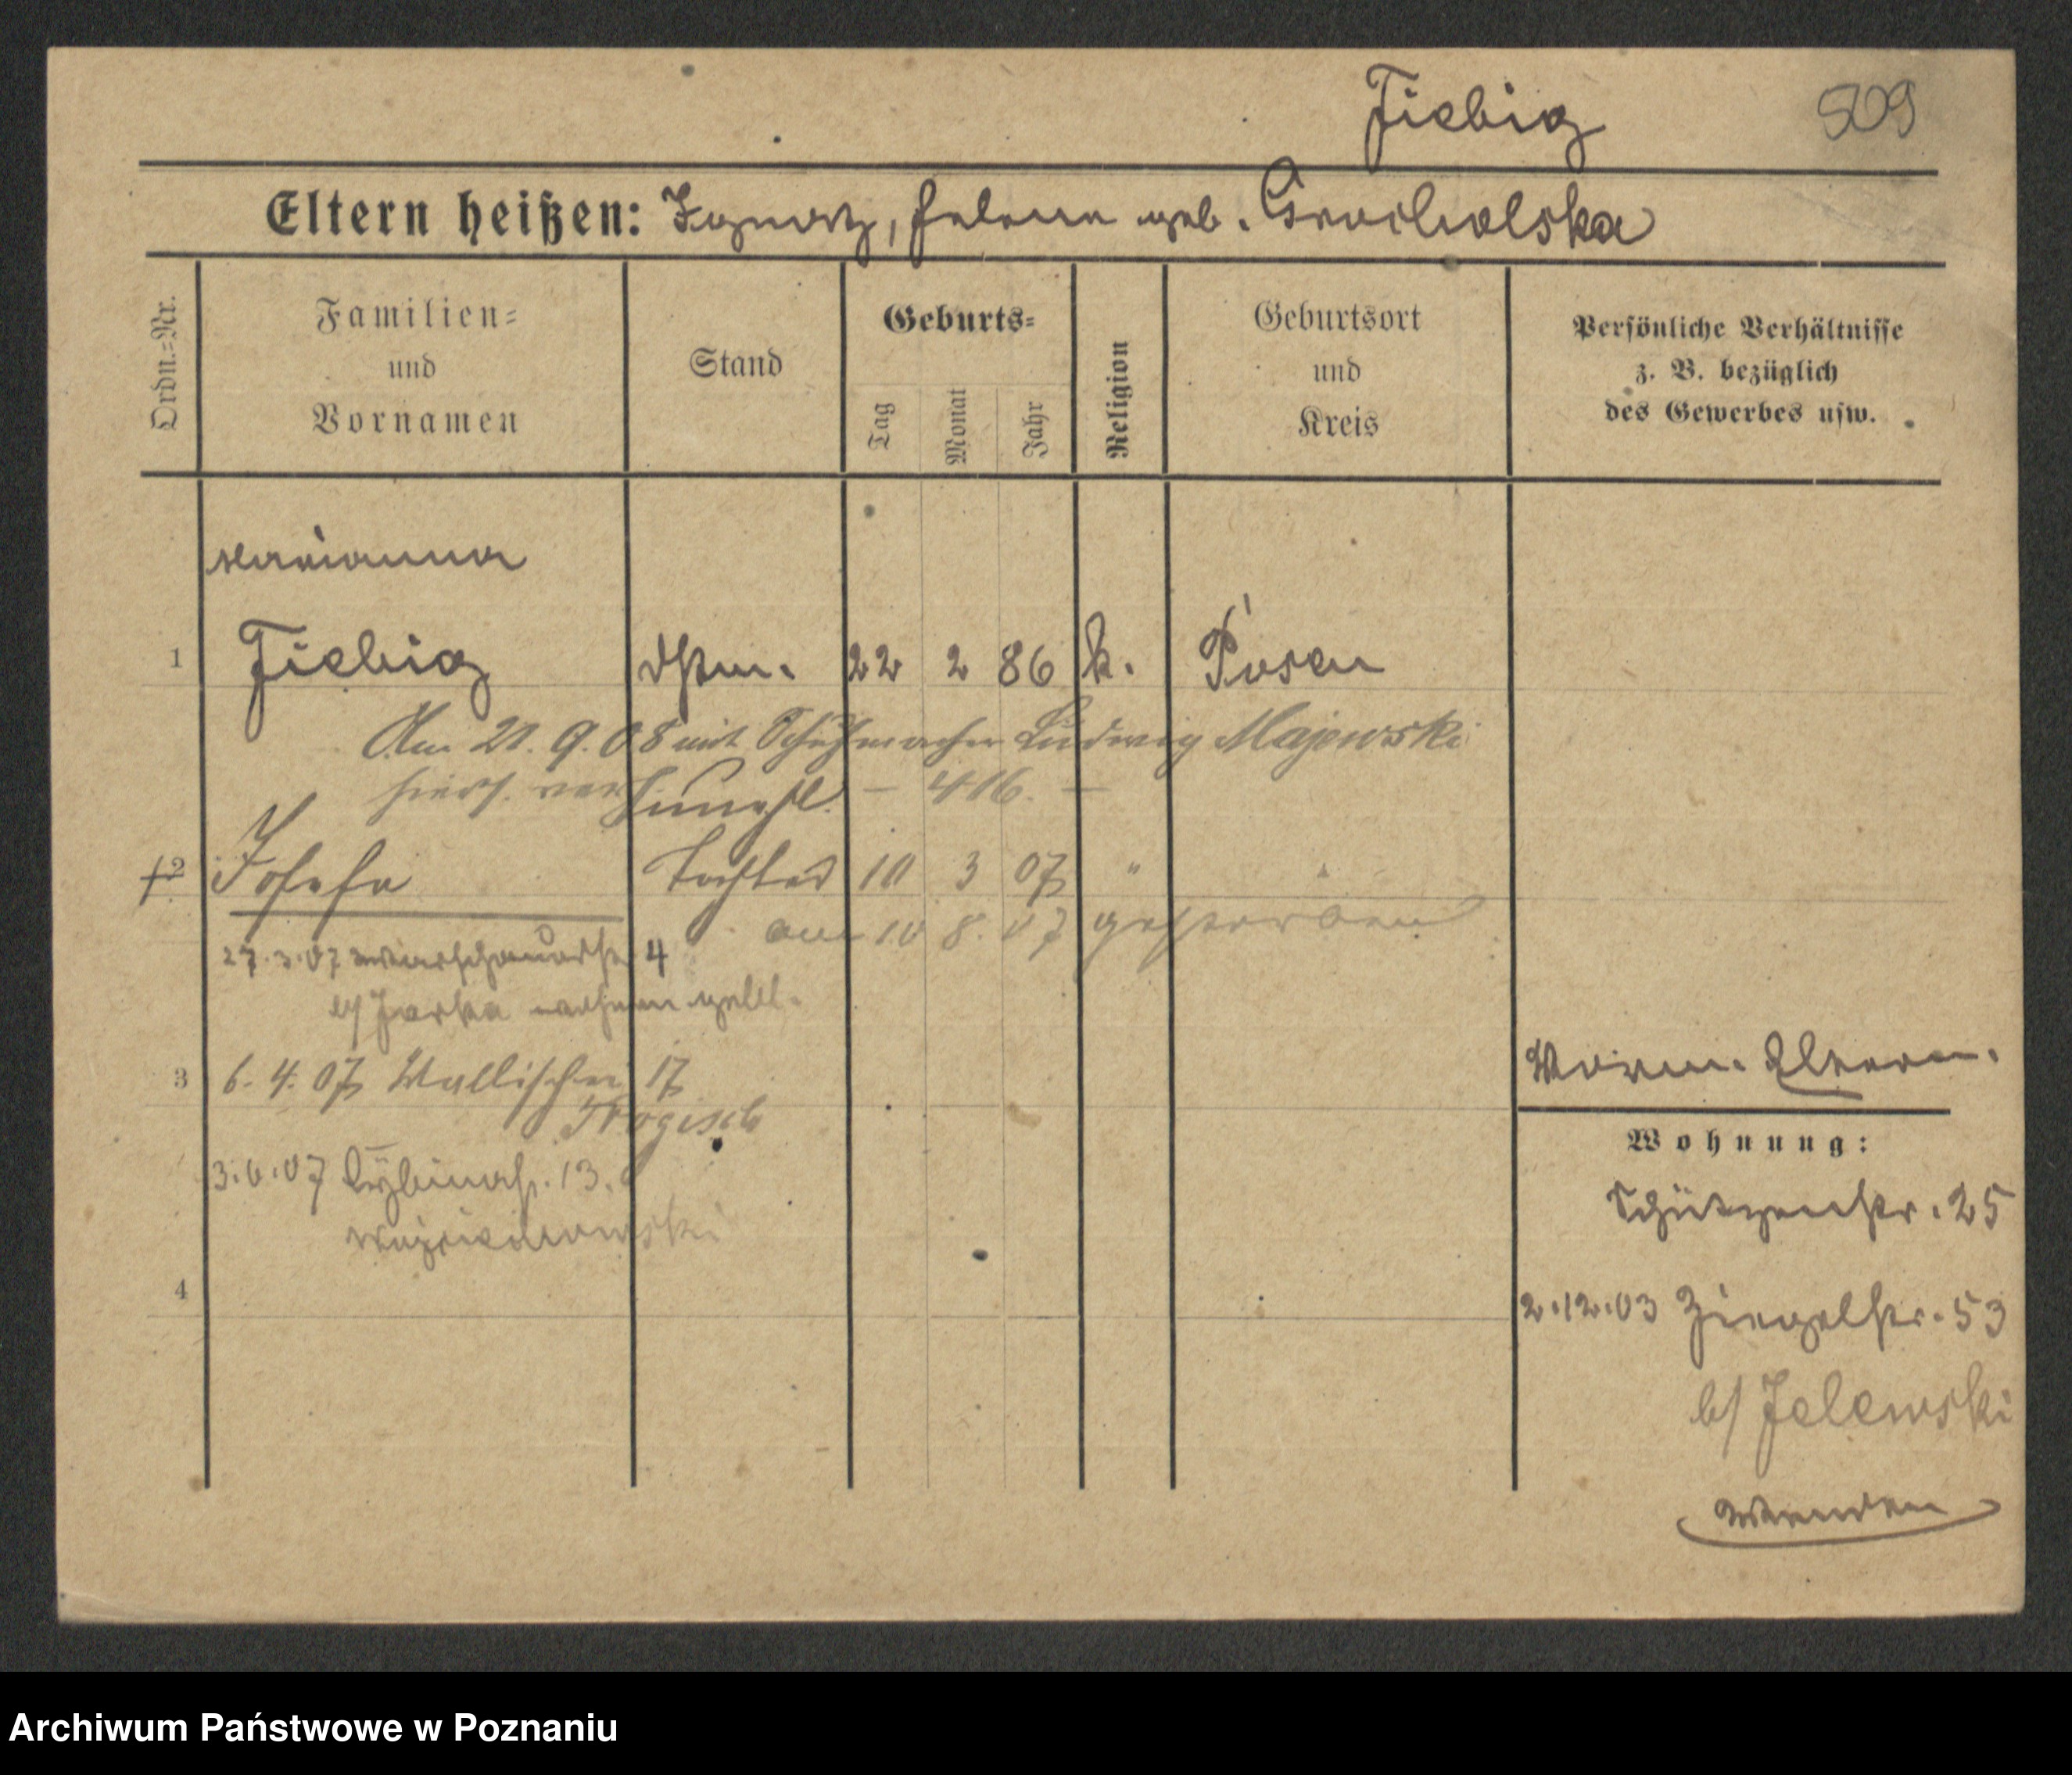 Fiebig 509
Eltern heißen: Ignatz, Helene geb. Grocholska
Ordn.=Nr.
Familien=
und
Vornamen
Stand
Geburts=
Tag Monat Jahr
Religion
Geburtsort
und
Kreis
Persönliche Verhältnisse
z. B. bezüglich
des Gewerbes usw.
Marianna
1 Fiebig 22 2 86 k. Posen
Am 21. 9. 08 mit Schuhmacher Ludwig Majewski
hiers. verehel. – 416. –
2 Josefa Tochter 10 3 07 " "
am 10 8. 07 gestorben
27.3.07 4
b/
3 6. 4. 07 Wallischei 17
3.6.07 13.
4
Wohnung:
Schützenstr. 25
2.12.03 Ziegelstr. 53
b/ Jelewski
wenden
Archiwum Państwowe w Poznaniu